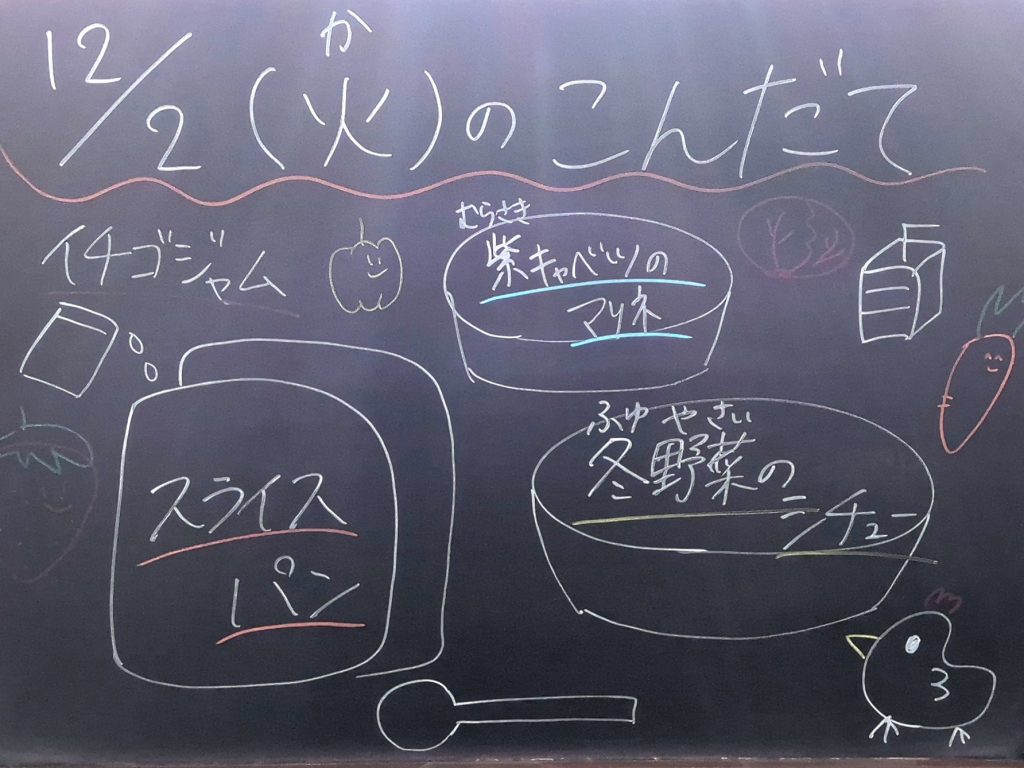 12/2(火)のこんだて
か
イチゴジャム
むらさき
紫キャベツの
マリネ
スライス
パン
ふゆやさい
冬野菜の
シチュー